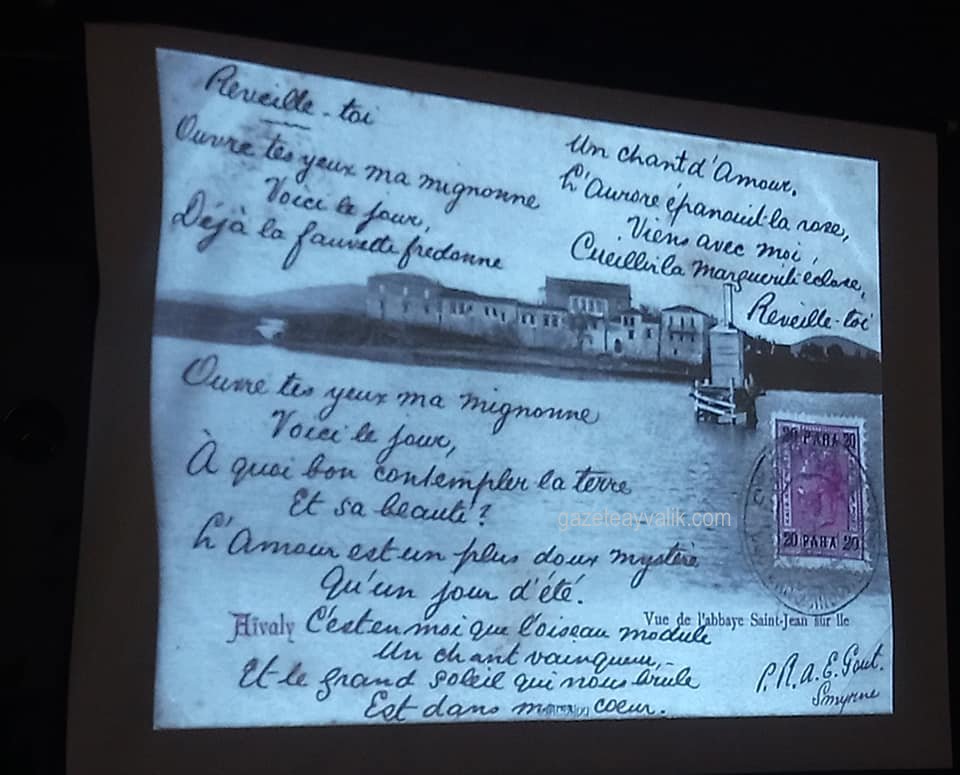 Réveille-toi
Ouvre tes yeux ma mignonne
Voici le jour,
Déjà la fauvette fredonne
Un chant d'Amour.
L'Aurore épanouit la rose,
Viens avec moi,
Cueillir la marguerite éclose,
Réveille-toi
Ouvre tes yeux ma mignonne
Voici le jour,
À quoi bon contempler la terre
Et sa beauté?
L'Amour est un plus doux mystère
Qu'un jour d'été.
C'est en moi que l'oiseau module
Un chant vainqueur,
Et le grand soleil qui nous brule
Est dans mon coeur.
20 PARA 20
20 PARA 20
gazeteayvalik.com
Aïvaly
Vue de l'abbaye Saint-Jean sur Ile
P. R. a. E. Gout.
Smyrne